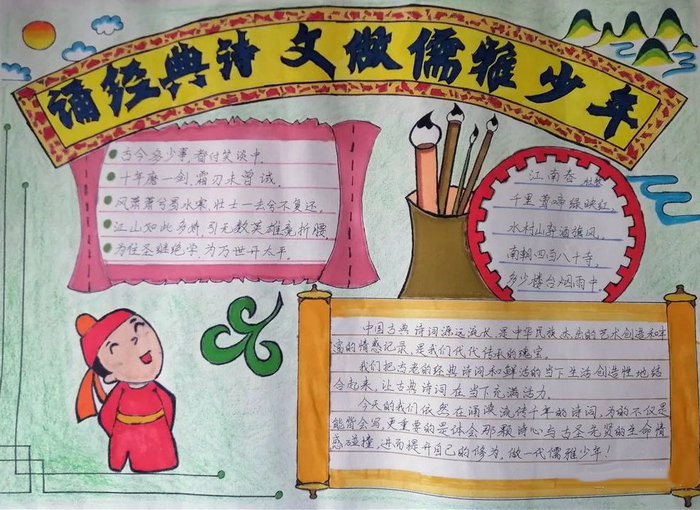 诵经典诗文做儒雅少年
古今多少事,都付笑谈中。
十年磨一剑,霜刃未曾试。
风萧萧兮易水寒,壮士一去兮不复还。
江山如此多娇,引无数英雄竞折腰
为往圣继绝学,为万世开太平。
江南春 杜牧
千里莺啼绿映红,
水村山郭酒旗风。
南朝四百八十寺,
多少楼台烟雨中
中国古典诗词源远流长,是中华民族杰出的艺术创造和丰
富的情感记录,是我们代代传承的瑰宝。
我们把古老的经典诗词和鲜活的当下生活创造性地结
合起来,让古典诗词在当下充满活力。
今天的我们依然在诵读流传千年的诗词,为的不仅是
能背会写,更重要的是体会那颗诗心与古圣先贤的生命情
感碰撞,进而提升自己的修为,做一代儒雅少年!